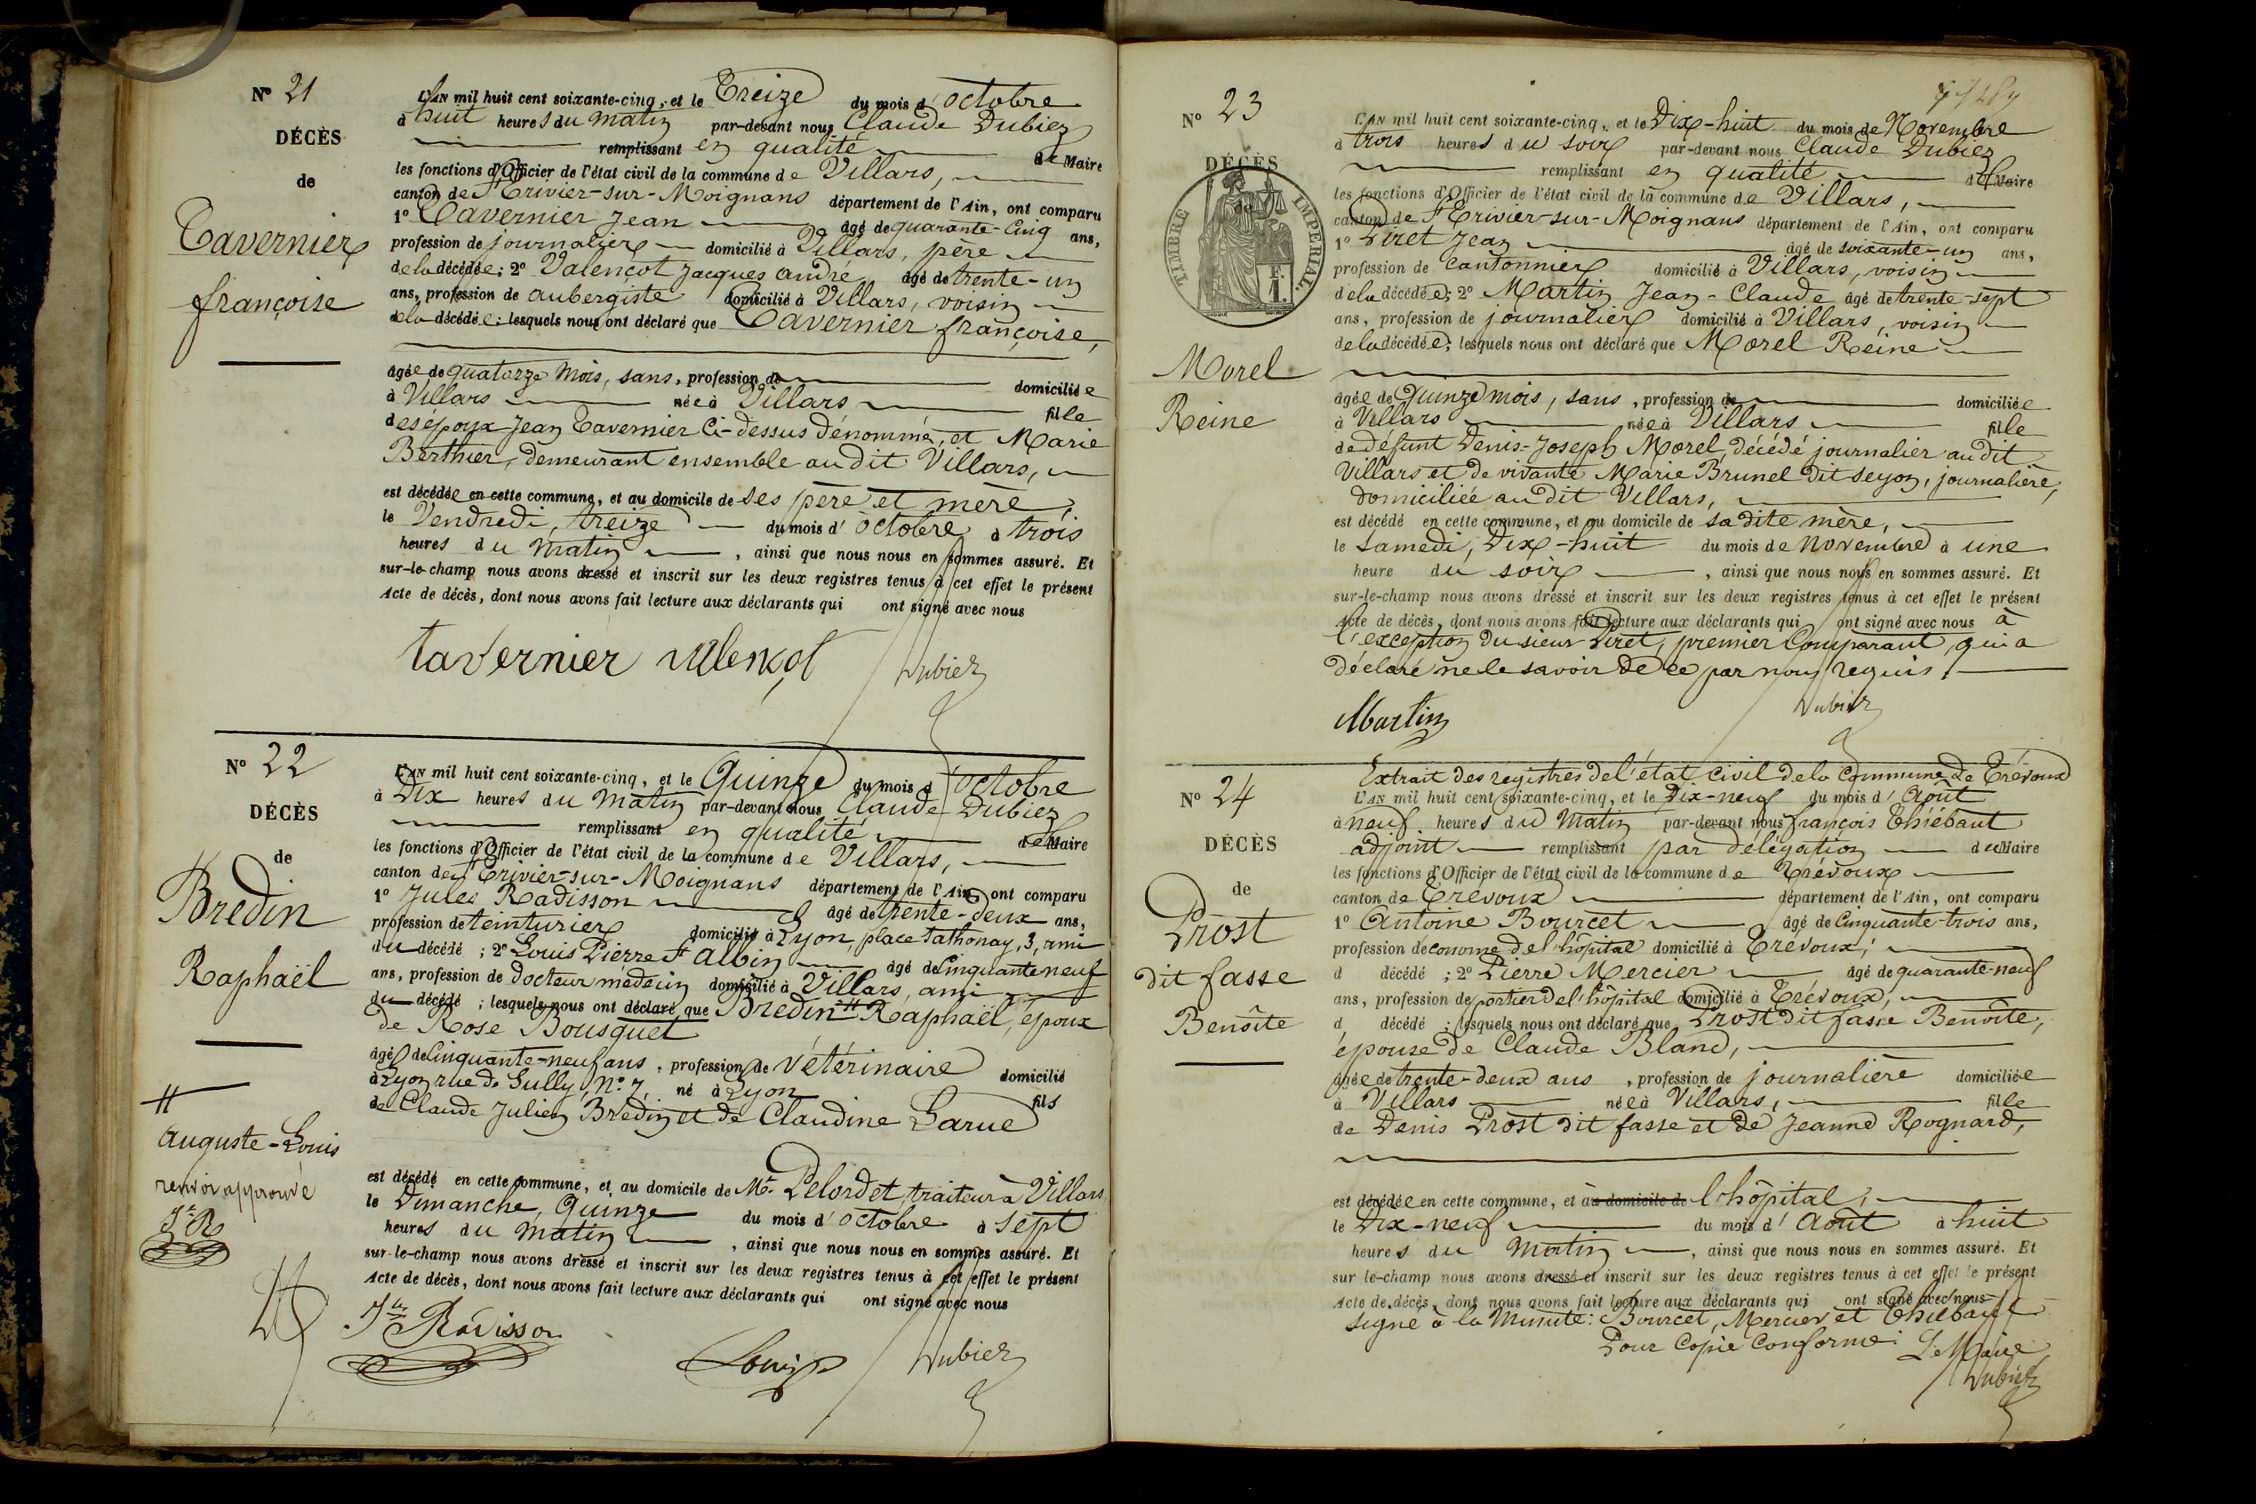 N° 21
DÉCÈS
de
Tavernier
françoise
L'AN mil huit cent soixante-cinq, et le Treize du mois d'octobre
à huit heures du matin par-devant nous Claude Dubiez
remplissant en qualité de Maire
les fonctions d'Officier de l'état civil de la commune de Villars,
canton de St Trivier-sur-Moignans département de l'Ain, ont comparu
1° Tavernier Jean âgé de quarante-cinq ans,
profession de journalier domicilié à Villars, père
de la décédée; 2° Valençot Jacques andré âgé de trente-un
ans, profession de aubergiste domicilié à Villars, voisin
de la décédée; lesquels nous ont déclaré que Tavernier françoise,
âgée de quatorze mois, sans, profession de domiciliée
à Villars née à Villars fille
des époux Jean Tavernier ci-dessus dénommé, et Marie
Berthier, demeurant ensemble au dit Villars,
est décédée en cette commune, et au domicile de ses père et mère,
le Vendredi, treize du mois d'octobre à trois
heures du matin, ainsi que nous nous en sommes assuré. Et
sur-le-champ nous avons dressé et inscrit sur les deux registres tenus à cet effet le présent
Acte de décès, dont nous avons fait lecture aux déclarants qui ont signé avec nous
tavernier valençot Dubiez
N° 22
DÉCÈS
de
Bredin
Raphaël
#
Auguste-Louis
renvoi approuvé
L'AN mil huit cent soixante-cinq, et le Quinze du mois d'octobre
à Dix heures du matin par-devant nous Claude Dubiez
remplissant en qualité de Maire
les fonctions d'Officier de l'état civil de la commune de Villars,
canton de St Trivier-sur-Moignans département de l'Ain, ont comparu
1° Jules Radisson âgé de trente-deux ans,
profession de teinturier domicilié à Lyon, place Sathonay, 3, ami
du décédé; 2° Louis Pierre St Albin âgé de cinquante neuf
ans, profession de Docteur médecin domicilié à Villars, ami
du décédé; lesquels nous ont déclaré que Bredin # Raphaël, époux
de Rose Bousquet
âgé de cinquante-neuf ans, profession de vétérinaire domicilié
à Lyon rue de Sully, N° 7, né à Lyon fils
de Claude Julien Bredin et de Claudine Larue
est décédé en cette commune, et au domicile de Mr. Pelordet, traiteur à Villars
le Dimanche, Quinze du mois d'octobre à sept
heures du matin, ainsi que nous nous en sommes assuré. Et
sur-le-champ nous avons dressé et inscrit sur les deux registres tenus à cet effet le présent
Acte de décès, dont nous avons fait lecture aux déclarants qui ont signé avec nous
Jles Radisson Louis Dubiez
N° 23
DÉCÈS
TIMBRE IMPÉRIAL
Morel
Reine
L'AN mil huit cent soixante-cinq, et le Dix-huit du mois de Novembre
à trois heures du soir par-devant nous Claude Dubiez
remplissant en qualité de Maire
les fonctions d'Officier de l'état civil de la commune de Villars,
canton de St Trivier-sur-Moignans département de l'Ain, ont comparu
1° Piret Jean âgé de soixante-un ans,
profession de cantonnier domicilié à Villars, voisin
de la décédée; 2° Martin Jean-Claude âgé de trente-sept
ans, profession de journalier domicilié à Villars, voisin
de la décédée; lesquels nous ont déclaré que Morel Reine
âgée de Quinze mois, sans, profession de domiciliée
à Villars née à Villars fille
de défunt Denis-Joseph Morel, décédé journalier au dit
Villars et de vivante Marie Brunel dit seyon, journalière,
domiciliée au dit Villars,
est décédé en cette commune, et au domicile de sa dite mère,
le samedi, Dix-huit du mois de novembre à une
heure du soir, ainsi que nous nous en sommes assuré. Et
sur-le-champ nous avons dressé et inscrit sur les deux registres tenus à cet effet le présent
Acte de décès, dont nous avons fait lecture aux déclarants qui ont signé avec nous à
l'exception du sieur Piret, premier comparant, qui a
déclaré ne le savoir de ce par nous requis.
Martin Dubiez
N° 24
DÉCÈS
de
Prost
dit fasse
Benoîte
Extrait des registres de l'état civil de la Commune de Trévoux
L'AN mil huit cent soixante-cinq, et le Dix-neuf du mois d'Août
à neuf heures du matin par-devant nous françois Thiébaut
adjoint remplissant par délégation du Maire
les fonctions d'Officier de l'état civil de la commune de Trévoux
canton de Trévoux département de l'Ain, ont comparu
1° Antoine Bourcet âgé de cinquante-trois ans,
profession de économe de l'hôpital domicilié à Trévoux;
d décédé; 2° Pierre Mercier âgé de quarante-neuf
ans, profession de portier de l'hôpital domicilié à Trévoux,
d décédé; lesquels nous ont déclaré que Prost dit fasse Benoîte,
épouse de Claude Bland,
âgée de trente-deux ans, profession de journalière domiciliée
à Villars née à Villars, fille
de Denis Prost dit fasse et de Jeanne Rognard,
est décédée en cette commune, et au domicile de l'hôpital,
le Dix-neuf du mois d'Août à huit
heures du matin, ainsi que nous nous en sommes assuré. Et
sur le-champ nous avons dressé et inscrit sur les deux registres tenus à cet effet le présent
Acte de décès, dont nous avons fait lecture aux déclarants qui ont signé avec nous
signé à la minute: Bourcet, Mercier et Thiébaut
Pour Copie Conforme: Le Maire
Dubiez